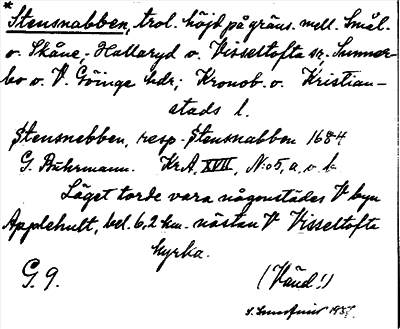 * Stensnabben, trol. höjd på gräns. mell. Smål.
o. Skåne, Hallaryd o. Visseltofta sr, Sunner-
bo o. V. Göinge hdr; Kronob. o. Kristian-
stads l.
Stensnebben, resp. Stensnabben 1684
G. Buhrmann. KrA, XVII, N:o 5, a o. b
Läget torde vara någonstädes V byn
Applehult, bel. 6,2 km. nästan V Visseltofta
kyrka.
G. 9. (Vänd!)